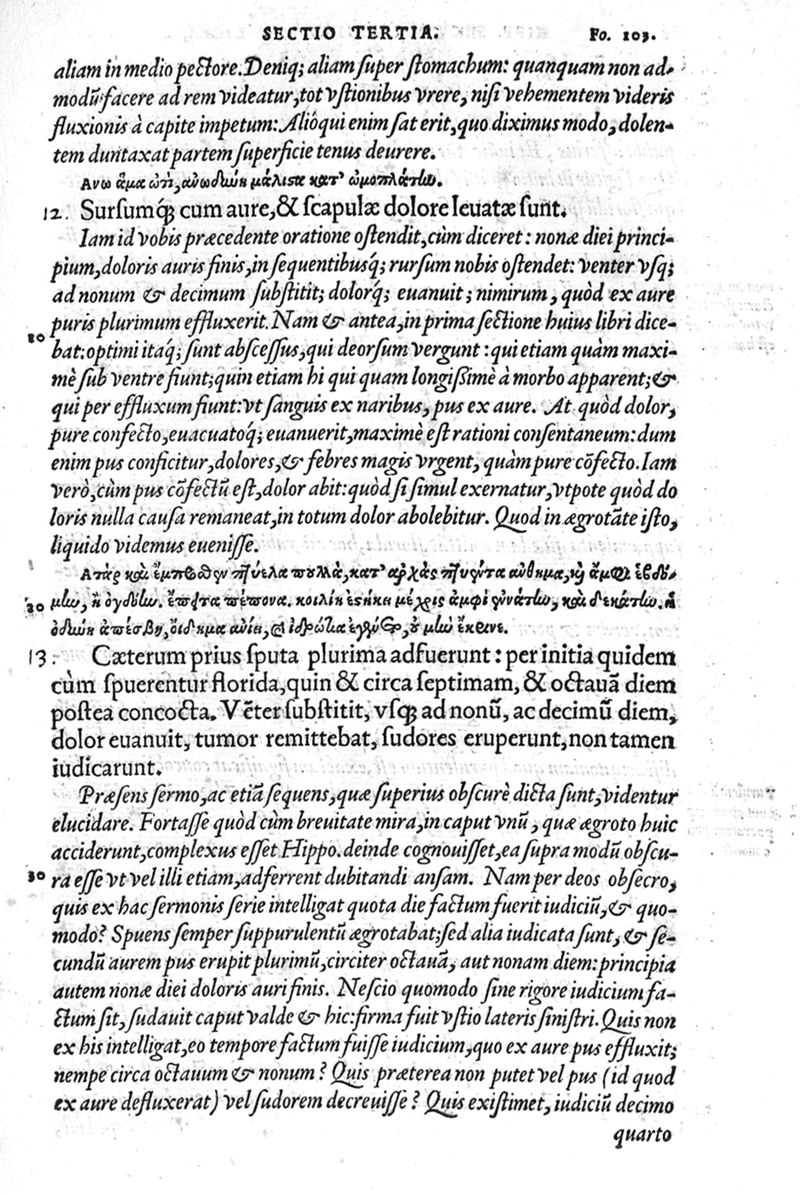 SECTIO TERTIA. Fo. 103.
aliam in medio pectore. Deniq; aliam super stomachum: quanquam non ad-
modũ facere ad rem videatur, tot vstionibus vrere, nisi vehementem videris
fluxionis à capite impetum: Aliôqui enim sat erit, quo diximus modo, dolen-
tem duntaxat partem superficie tenus deurere.
Ανω ἅμα ὠτὶ,
12. Sursumq́; cum aure, & scapulæ dolore leuatæ sunt.
Iam id vobis præcedente oratione ostendit, cùm diceret: nonæ diei princi-
pium, doloris auris finis, in sequentibusq́; rursum nobis ostendet: venter vsq;
ad nonum & decimum substitit; dolorq́; euanuit; nimirum, quòd ex aure
puris plurimum effluxerit. Nam & antea, in prima sectione huius libri dice-
bat: optimi itaq; sunt abscessus, qui deorsum vergunt: qui etiam quàm maxi-
mè sub ventre fiunt; quin etiam hi qui quam longißimè à morbo apparent; &
qui per effluxum fiunt: vt sanguis ex naribus, pus ex aure. At quòd dolor,
pure confecto, euacuatoq́; euanuerit, maximè est rationi consentaneum: dum
enim pus conficitur, dolores, & febres magis vrgent, quàm pure cõfecto. Iam
verò, cùm pus cõfectũ est, dolor abit: quòd si simul exernatur, vtpote quòd do
loris nulla causa remaneat, in totum dolor abolebitur. Quod in ægrotãte isto,
liquido videmus euenisse.
13. Cæterum prius sputa plurima adfuerunt: per initia quidem
cùm spuerentur florida, quin & circa septimam, & octauã diem
postea concocta. Vẽter substitit, vsq; ad nonũ, ac decimũ diem,
dolor euanuit, tumor remittebat, sudores eruperunt, non tamen
iudicarunt.
Præsens sermo, ac etiã sequens, quæ superius obscurè dicta sunt, videntur
elucidare. Fortasse quòd cùm breuitate mira, in caput vnũ, quæ ægroto huic
acciderunt, complexus esset Hippo. deinde cognouisset, ea supra modũ obscu-
ra esse vt vel illi etiam, adferrent dubitandi ansam. Nam per deos obsecro,
quis ex hac sermonis serie intelligat quota die factum fuerit iudiciũ, & quo-
modo? Spuens semper suppurulentũ ægrotabat; sed alia iudicata sunt, & se-
cundũ aurem pus erupit plurimũ, circiter octauã, aut nonam diem: principia
autem nonæ diei doloris auri finis. Nescio quomodo sine rigore iudicium fa-
ctum sit, sudauit caput valde & hic: firma fuit vstio lateris sinistri. Quis non
ex his intelligat, eo tempore factum fuisse iudicium, quo ex aure pus effluxit;
nempe circa octauum & nonum? Quis præterea non putet vel pus (id quod
ex aure defluxerat) vel sudorem decreuisse? Quis existimet, iudiciũ decimo
quarto